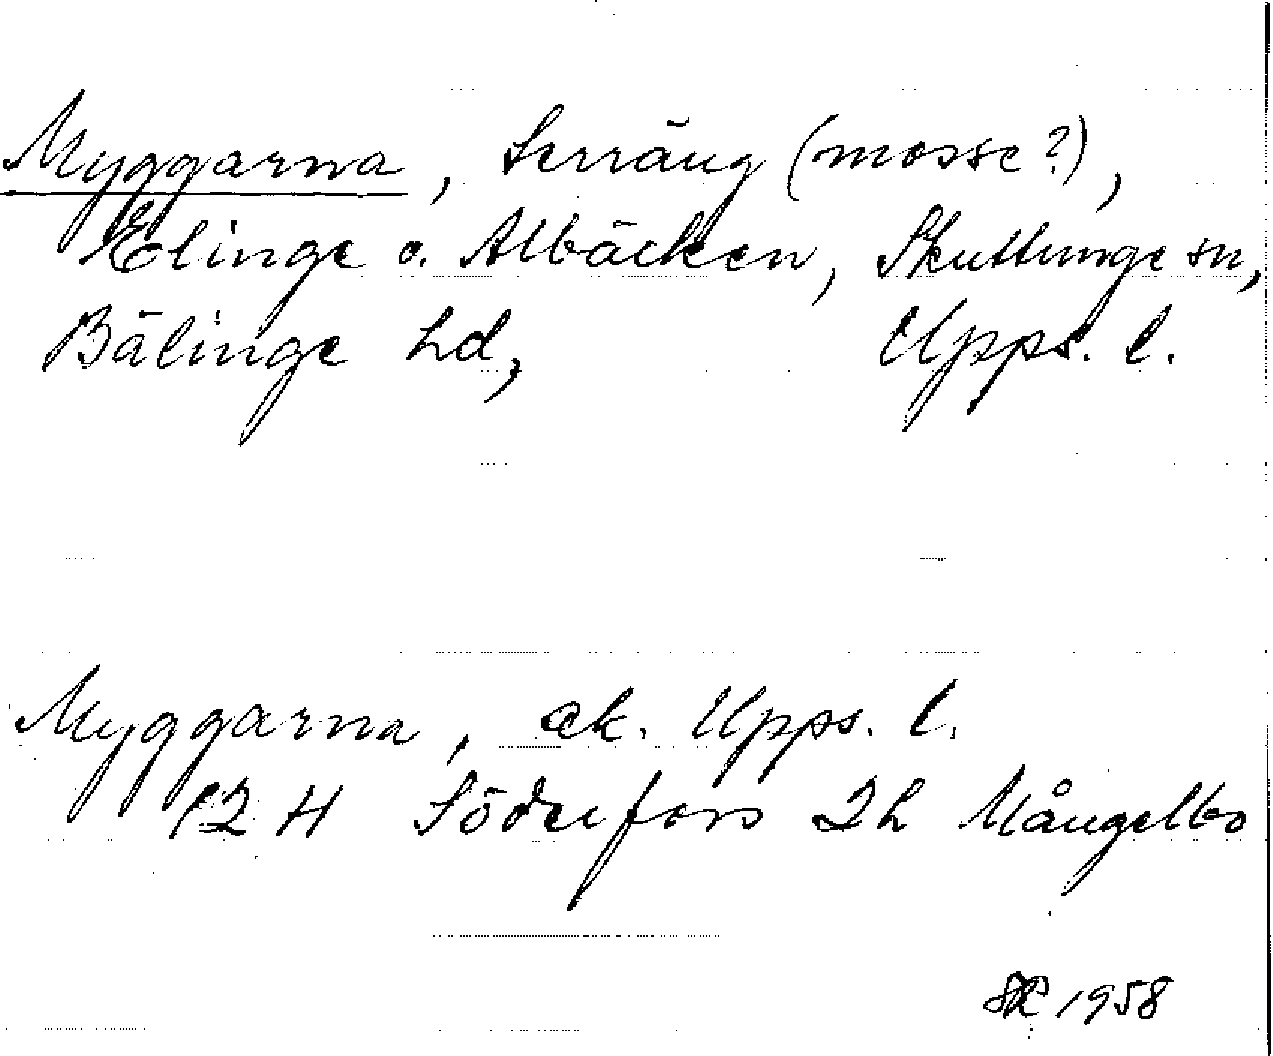 Myggarna, terräng (mosse?),
Elinge o. Albäcken, Skuttunge sn,
Bälinge hd, Upps. l.
Myggarna, ek. Upps. l.
12 H Söderfors 2h Mångelbo
1958